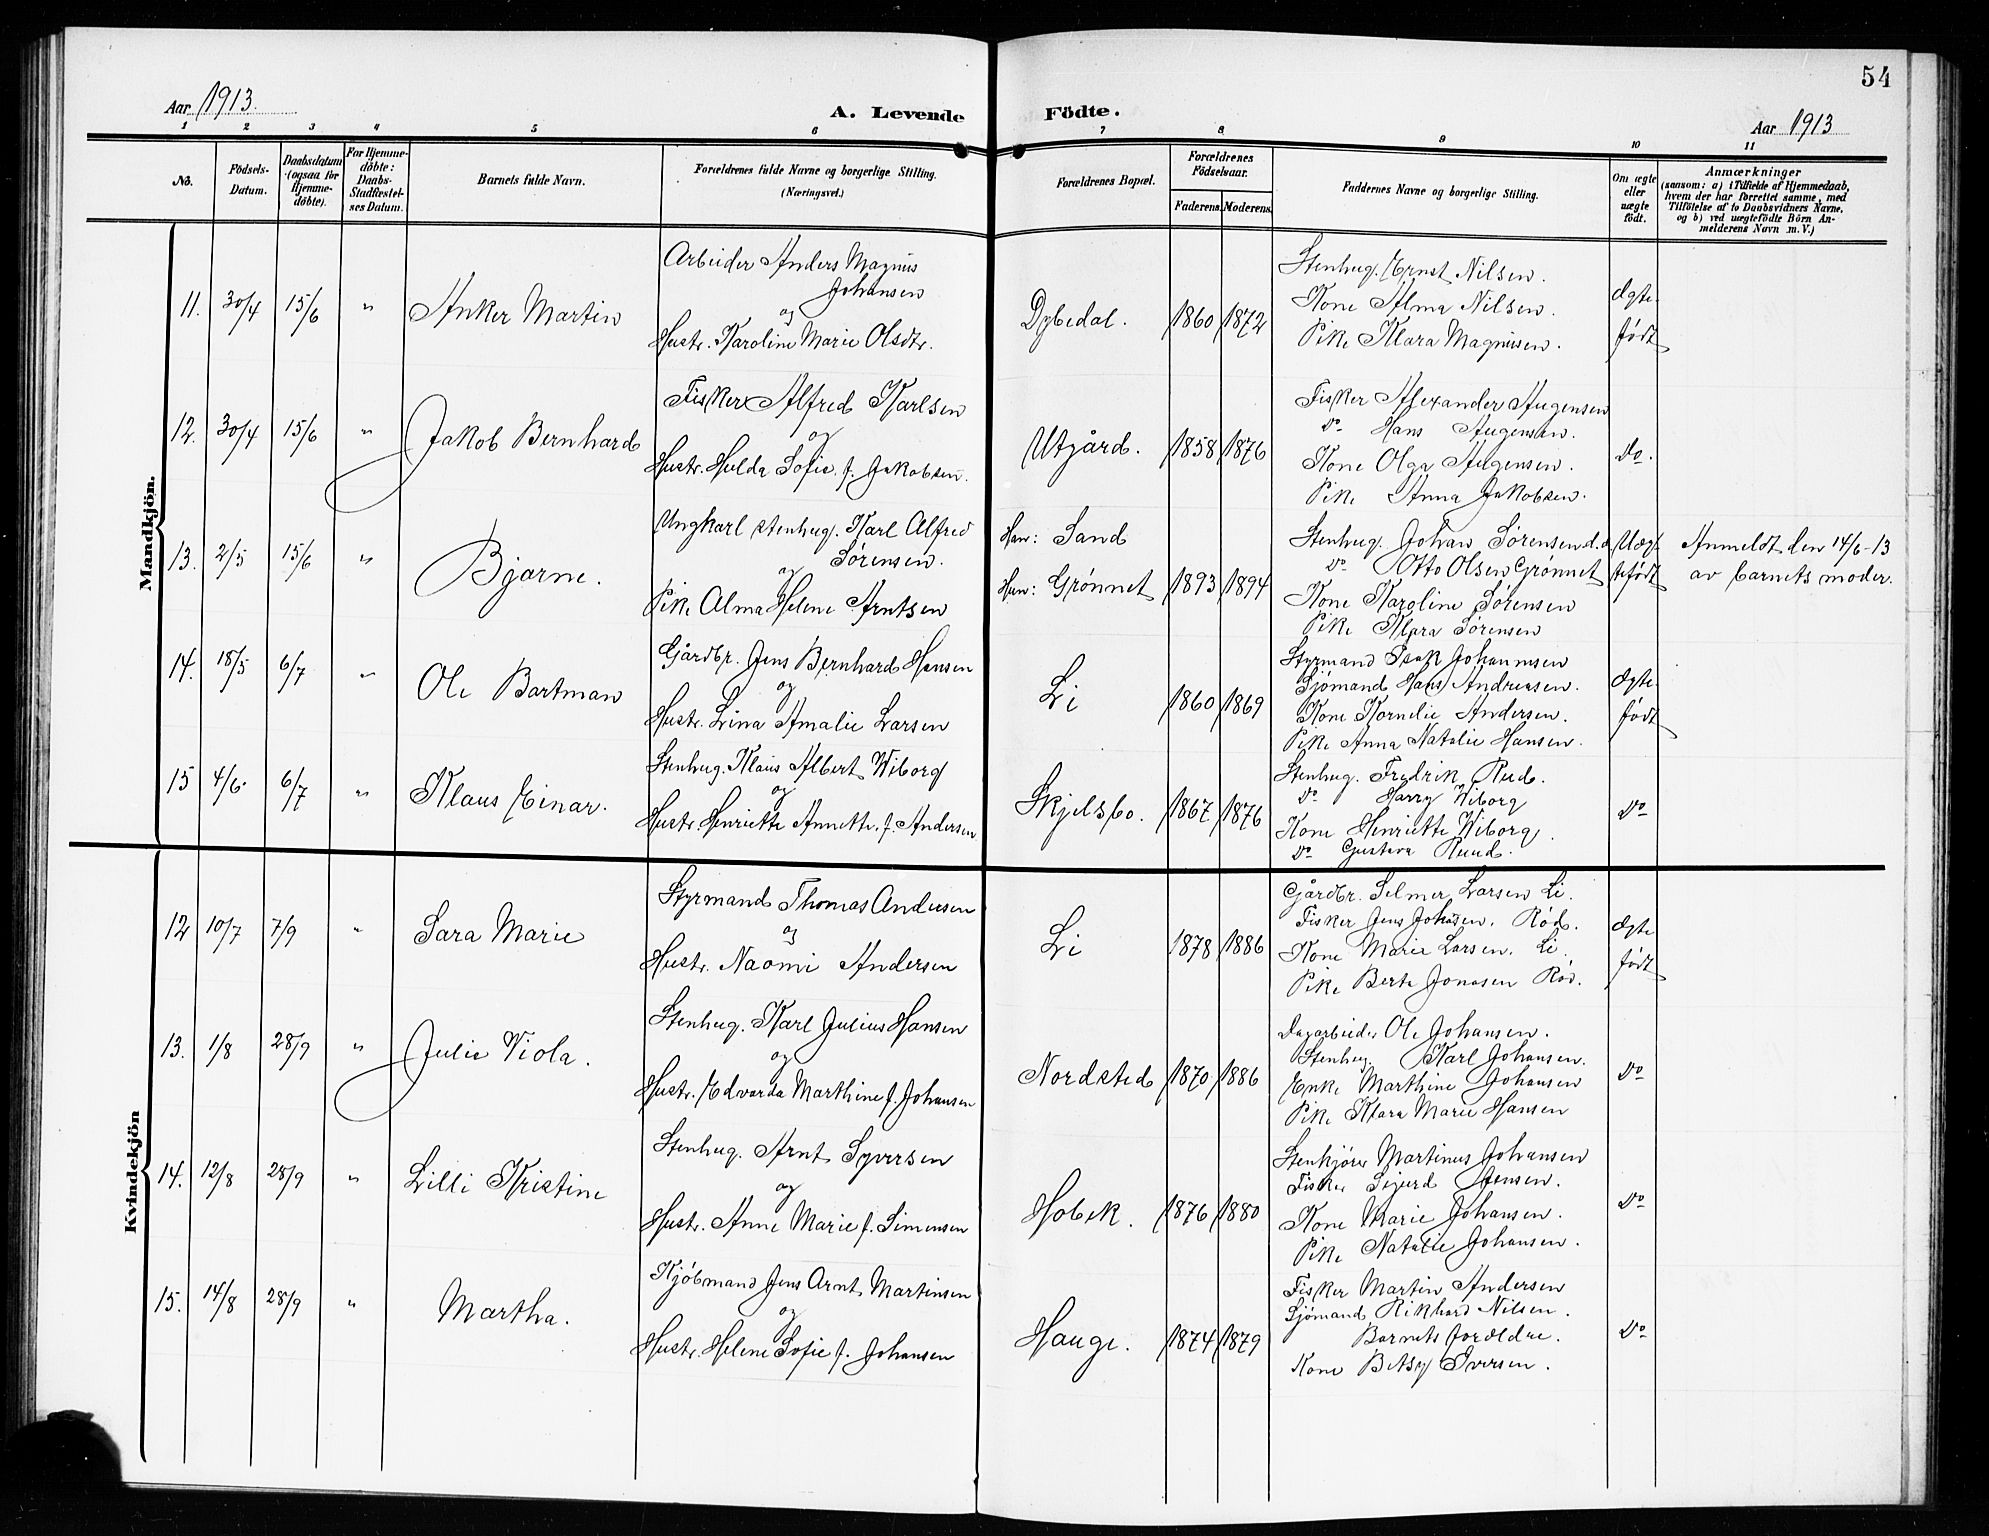 54
Aar 1913.
A. Levende Födte.
Aar 1913
1 2 3 4 5 6 7 8 9 10 11
No.
Födsels-Datum.
Daabsdatum (ogsaa for Hjemme-döbte).
For Hjemme-döbte: Daabs-Stadfæstel-ses Datum.
Barnets fulde Navn.
Forældrenes fulde Navne og borgerlige Stilling.
(Næringsvei.)
Forældrenes Bopæl.
Forældrenes Födselsaar.
Faderens.
Moderens.
Faddernes Navne og borgerlige Stilling.
Om ægte eller uægte födt.
Anmærkninger
(saasom: a) i Tilfælde af Hjemmedaab,
hvem der har forrettet samme, med
Tilföielse af to Daabsvidners Navne,
og b) ved uægtefödte Börn An-
melderens Navn m. V.)
Mandkjön.
11. 30/4 15/6 " Anker Martin
Arbeider Anders Magnus
Johansen
og
Hustr. Karoline Marie Olsdtr.
Dybedal. 1860 1872
Stenhug. Ernst Nilsen.
Kone Alma Nilsen.
Pike Klara Magnusen.
Ægte-
født
12. 30/4 15/6 " Jakob Bernhard
Fisker Alfred Karlsen
og
Hustr. Hulda Sofie f. Jakobsen.
Utgård. 1858 1876
Fisker Alexander Augensen
Do Hans Augensen.
Kone Olga Augensen.
Pike Anna Jakobsen.
Do.
13. 2/5 15/6 " Bjarne.
Ungkarl stenhug. Karl Alfred
Sørensen.
og
Pike Alma Helene Arntsen
Han: Sand
Hun: Grønnet 1893 1894
Stenhug. Johan Sørensen d.æ
Do Otto Olsen Grønnet
Kone Karoline Sørensen
Pike Klara Sørensen
Uæg-
tefødt
Anmeldt den 14/6-13
av barnets moder.
14. 18/5 6/7 " Ole Bartman
Gårdbr. Jens Bernhard Hansen
og
Hustr. Lina Amalie Larsen
Li 1860 1869
Styrmand Isak Johannesen
Sjömand Hans Andreasen.
Kone Kornelie Andersen.
Pike Anna Natalie Hansen.
Ægte-
født
15 4/6. 6/7 " Klaus Einar.
Stenhug. Klaus Albert Wiborg
og
Hustr. Henriette Annette f. Andersen
Skjelsbo. 1867 1876
Stenhug. Fredrik Rud.
Do Harry Wiborg
Kone Henriette Wiborg.
Do Gustava Ruud.
Do
Kvindekjön
12 10/7 7/9 " Sara Marie
Styrmand Thomas Andersen
og
Hustr. Naomi Andersen
Li 1878 1886
Gårdbr. Selmer Larsen Li.
Fisker Jens Johasen. Rød.
Kone Marie Larsen. Li.
Pike Berte Jonasen Rød.
Ægte
født
13. 1/8 28/9 " Julie Viola.
Stenhug. Karl Julius Hansen
og
Hustr. Edvarda Marthine f. Johansen
Nordsted 1870 1886
Dagarbeider Ole Johansen.
Stenhug. Karl Johansen.
Enke Marthine Johansen
Pike Klara Marie Hansen
Do
14. 12/8 28/9 " Lilli Kristine
Stenhug. Arnt Syversen
og
Hustr. Anne Marie f. Simensen
Hobek. 1876 1880
Stenkjører Martinus Johansen
Fisker Sigurd Jensen.
Kone Marie Johansen.
Pike Natalie Johansen.
Do
15. 14/8 28/9 " Martha.
Kjöbmand Jens Arnt Martinsen
og
Hustr. Helene Sofie f. Johansen
Hauge. 1874 1879
Fisker Martin Andersen
Sjömand Rikhard Nilsen.
Barnets forældre.
Kone Betsy Iversen.
Do